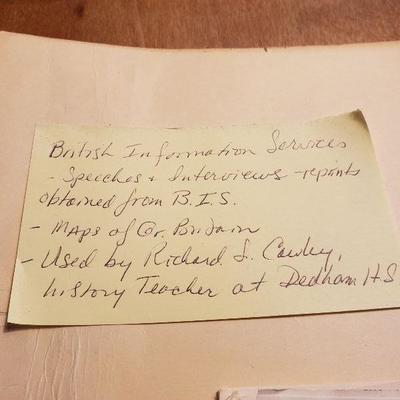 British Information Services
- Speeches + Interviews - reprints
obtained from B.I.S.
- Maps of Gr. Britain
- Used by Richard S. Cawley,
history Teacher at Dedham H.S